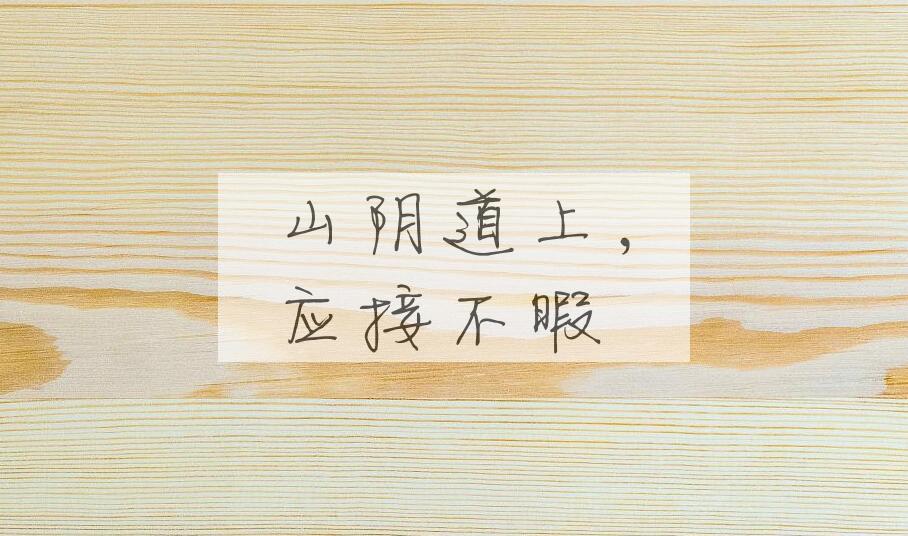 山阴道上，
应接不暇